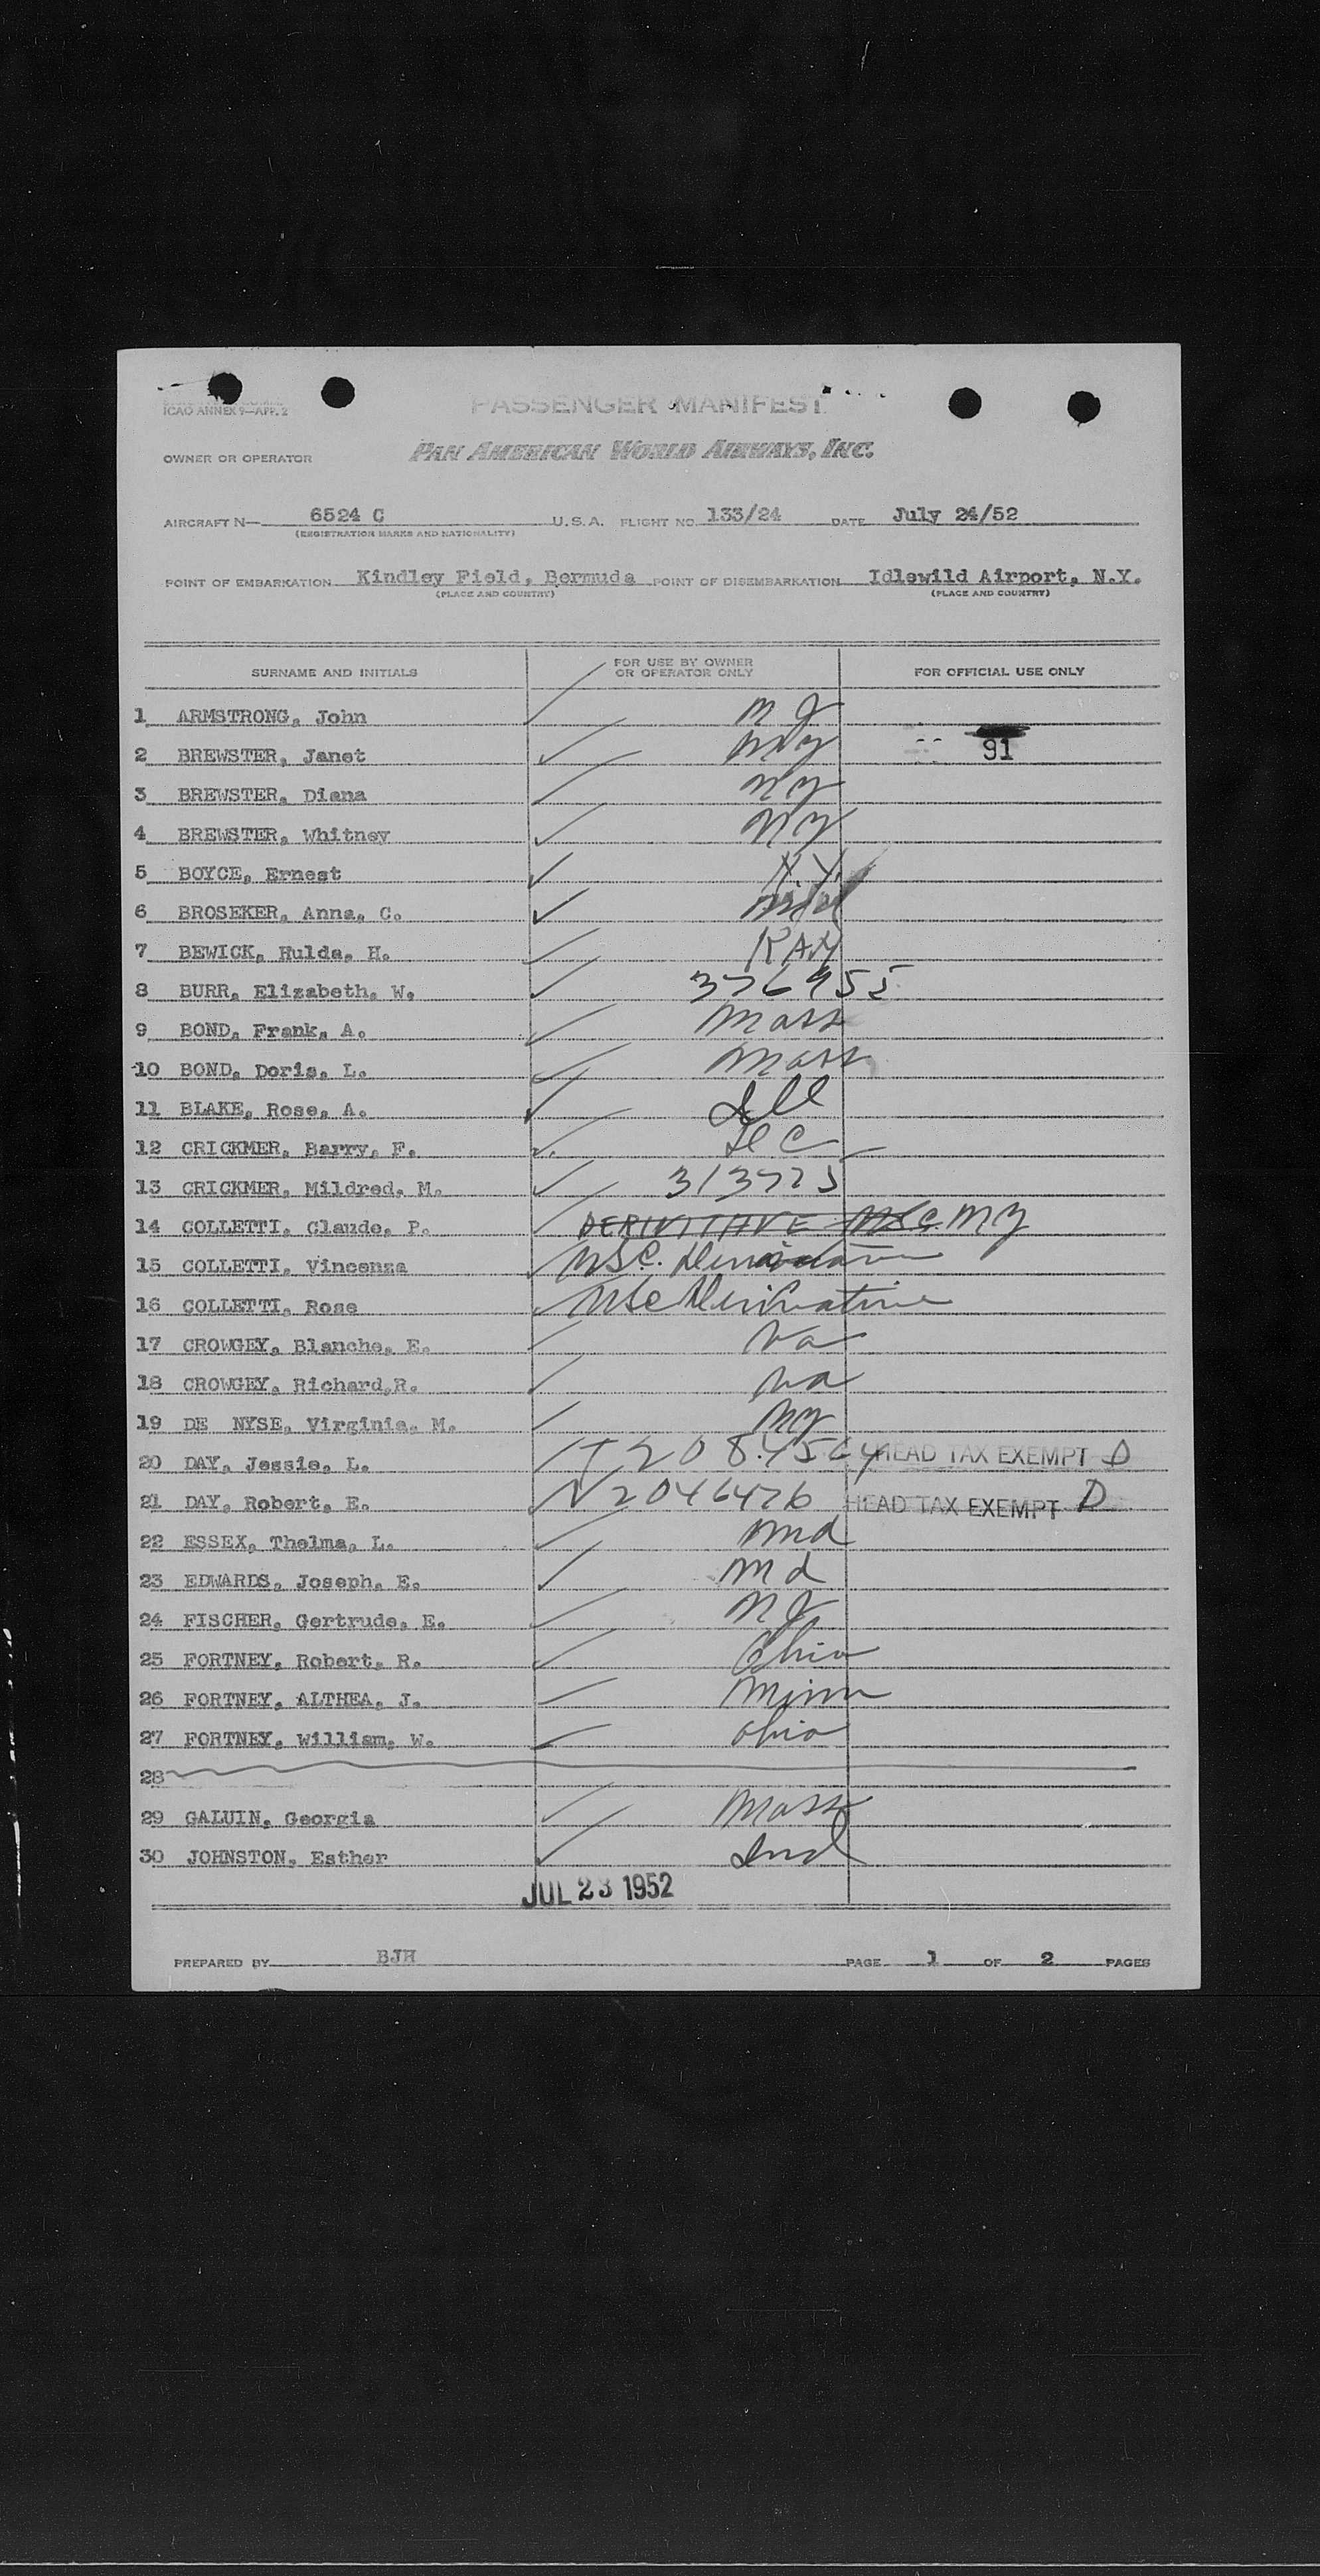 ICAO ANNEX 9—APP. 2
PASSENGER MANIFEST
OWNER OR OPERATOR PAN AMERICAN WORLD AIRWAYS, INC.
AIRCRAFT N— 6524 C U.S.A. FLIGHT NO. 133/24 DATE July 24/52
(REGISTRATION MARKS AND NATIONALITY)
POINT OF EMBARKATION Kindley Field, Bermuda POINT OF DISEMBARKATION Idlewild Airport, N.Y.
(PLACE AND COUNTRY) (PLACE AND COUNTRY)
SURNAME AND INITIALS FOR USE BY OWNER OR OPERATOR ONLY FOR OFFICIAL USE ONLY
1 ARMSTRONG, John N J
2 BREWSTER, Janet NY 91
3 BREWSTER, Diana NY
4 BREWSTER, Whitney NY
5 BOYCE, Ernest N.Y.
6 BROSEKER, Anna, C.
7 BEWICK, Hulda, H. KAN
8 BURR, Elizabeth, W. 376955
9 BOND, Frank, A. Mass
10 BOND, Doris, L. Mass
11 BLAKE, Rose, A. Ill
12 CRICKMER, Barry, F. DC
13 CRICKMER, Mildred, M. 313725
14 COLLETTI, Claude, P. DERIVITIAVE USC NY
15 COLLETTI, Vincenza USC.
16 COLLETTI, Rose USC Derivative
17 CROWGEY, Blanche, E. Va
18 CROWGEY, Richard,R. Va
19 DE NYSE, Virginia, M. NY
20 DAY, Jessie, L. HEAD TAX EXEMPT D
21 DAY, Robert, E. V2046476 HEAD TAX EXEMPT D
22 ESSEX, Thelma, L. Md
23 EDWARDS, Joseph, E. Md
24 FISCHER, Gertrude, E. NJ
25 FORTNEY, Robert, R. Ohio
26 FORTNEY, ALTHEA, J. Minn
27 FORTNEY, William, W. Ohio
28
29 GALUIN, Georgia Mass
30 JOHNSTON, Esther Ind
JUL 23 1952
PREPARED BY BJH PAGE 1 OF 2 PAGES